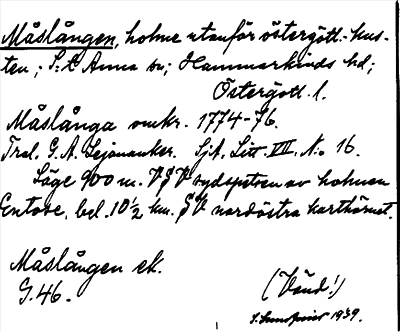 Måslången, holme utanför östergötl. kus-
ten; S:t Anna sn; Hammarkinds hd;
Östergötl. l.
Måslånga omkr. 1774-76.
Trol. G. A. Lejonanker. Sjk. Litt. VII. No 16.
Läge 900 m. VSV sydspetsen av holmen
Entose, bel. 10 1/2 km. SV nordöstra karthörnet.
Måslången ek.
G. 46.
(Vänd!)
1939.